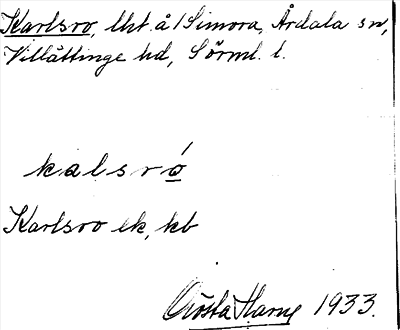 Karlsro, lht. å /Simora, Årdala sn,
Villåttinge hd, Sörml. l.
kalsró̱
Karlsro ek, kb
Gösta Harne 1933.